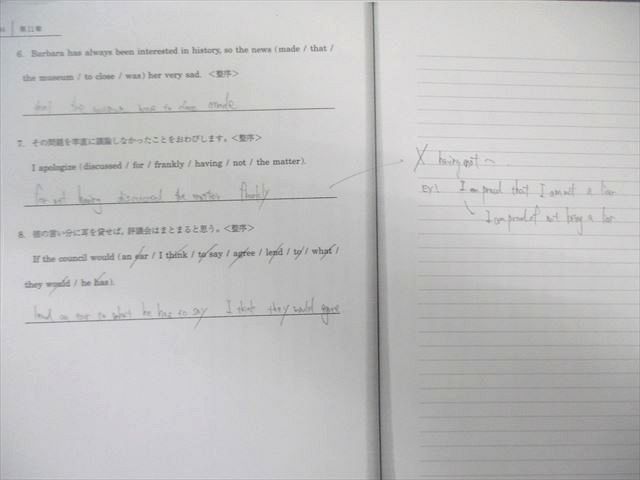 第11章
6. Barbara has always been interested in history, so the news (made / that /
the museum / to close / was) her very sad. <整序>
that the museum was to close made
7. その問題を率直に議論しなかったことをおわびします。<整序>
I apologize (discussed / for / frankly / having / not / the matter).
for not having discussed the matter frankly
8. 彼の言い分に耳を貸せば，評議会はまとまると思う。<整序>
If the council would (an ear / I think / to say / agree / lend / to / what /
they would / he has).
lend an ear to what he has to say I think they would agree
X having not ~
Ex) I am proud that I am not a liar
I am proud of not being a liar